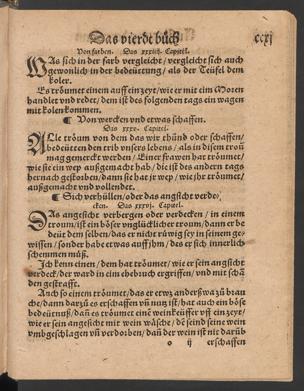 Das vierdt büch
ccxj
Von farben. Das xxxiiij. Capitel.
WAs sich in der farb vergleicht / vergleicht sich auch
gewonlich in der bedeüttung / als der Teüfel dem
koler.
Es tröumet einem auff ein zeyt / wie er mit eim Moren
handlet vnd redet / dem ist des folgenden tags ein wagen
mit kolen kommen.
¶ Von wercken vnd etwas schaffen.
Das xxxv. Capitel.
ALle tröum von dem das wir thünd oder schaffen /
bedeütten den trib vnsers lebens / als in disem troũ
mag gemerckt werden / Einer frawen hat tröumet /
wie sie ein wep außgemacht hab / die ist des andern tags
hernach gestorben / dann sie hat jr wep / wie jhr tröumet /
außgemacht vnd vollendet.
¶ Sich verhüllen / oder das angsicht verde-
cken. Das xxxvj. Capitel.
DAs angesicht verbergen oder verdecken / in einem
troum / ist ein böser vnglücklicher troum / dann er be
deüt dem selben / das er nicht rüwig sey in seinem ge-
wissen / sonder habe etwas auff jhm / des er sich innerlich
schemmen müß.
Ich kenn einen / dem hat tröumet / wie er sein angsicht
verdeck / der ward in eim ehebruch ergriffen / vnd mit schã
den gestrafft.
Auch so einem tröumet / das er etwz anderßwa zü brau
che / dann darzü es erschaffen vñ nutz ist / hat auch ein böse
bedeütnuß / dañ es tröumet einẽ weinkeüffer vff ein zeyt /
wie er sein angesicht mit wein wäsche / dẽ seind seine wein
vmbgeschlagen vñ verdorben / dañ der wein ist nit darüb
o ij erschaffen